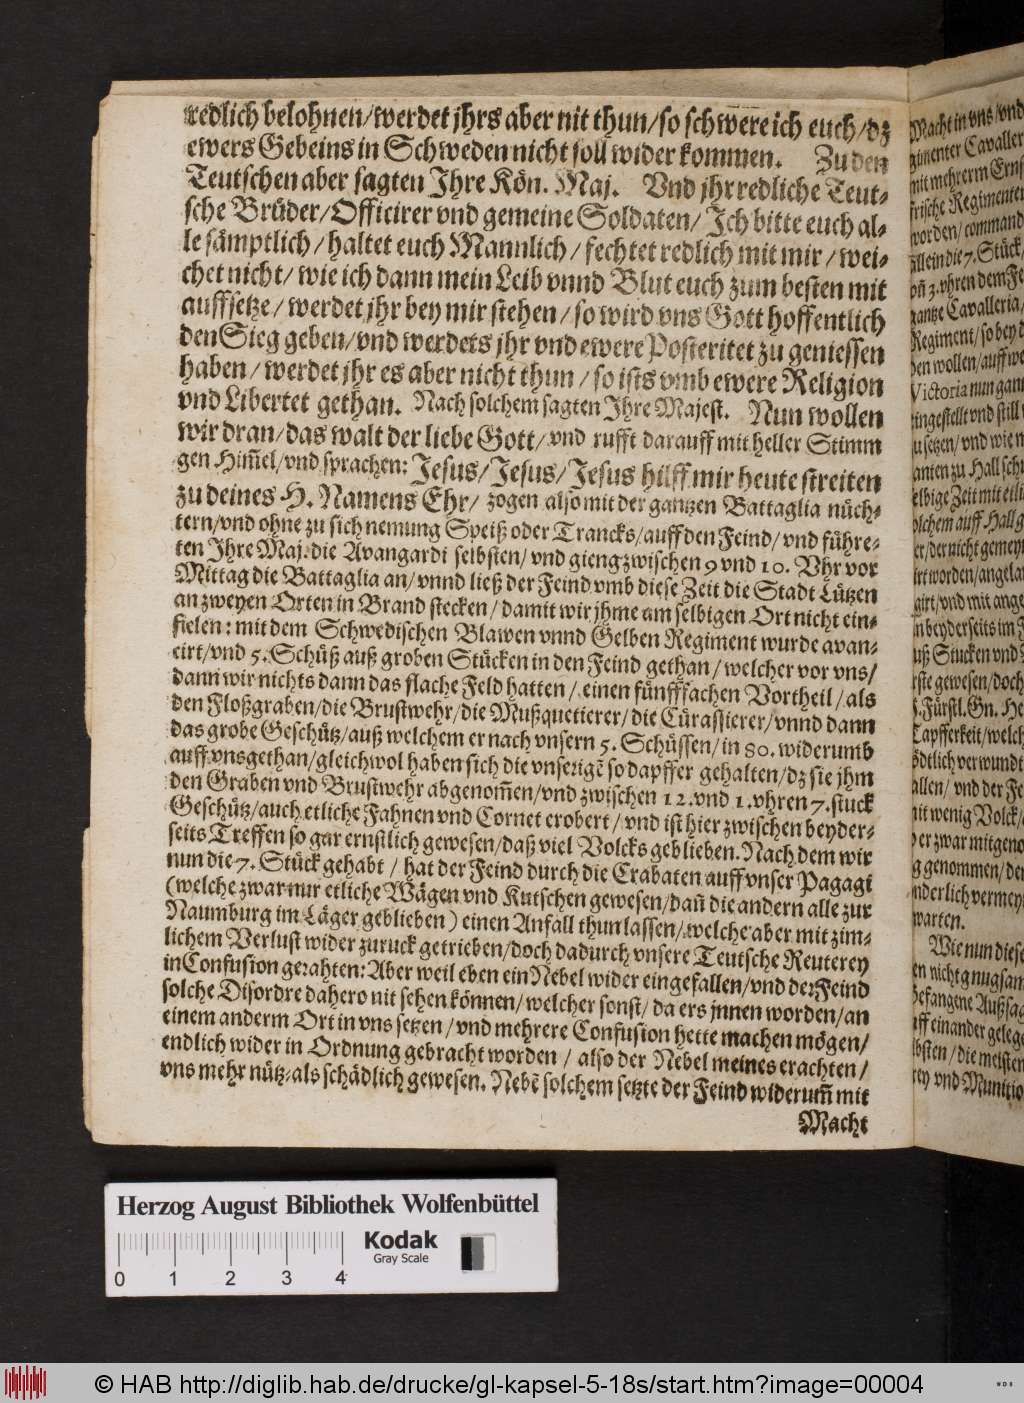 redlich belohnen/werdet jhrs aber nit thun/so schwere ich euch/dz
ewers Gebeins in Schweden nicht soll wider kommen. Zu den
Teutschen aber sagten Ihre Kön. Maj. Vnd jhr redliche Teut-
sche Brüder/Officirer vnd gemeine Soldaten/Ich bitte euch al-
le sämptlich/haltet euch Mannlich/fechtet redlich mit mir/wei-
chet nicht/wie ich dann mein Leib vnnd Blut euch zum besten mit
auffsetze/werdet jhr bey mir stehen/so wird vns Gott hoffentlich
den Sieg geben/vnd werdets jhr vnd ewere Posteritet zu geniessen
haben/werdet jhr es aber nicht thun/so ists vmb ewere Religion
vnd Libertet gethan. Nach solchem sagten Ihre Majest. Nun wollen
wir dran/das walt der liebe Gott/vnd rufft darauff mit heller Stimm
gen Him̄el/vnd sprachen: Jesus/Jesus/Jesus hilff mir heute streiten
zu deines H. Namens Ehr/zogen also mit der gantzen Battaglia nüch-
tern/vnd ohne zu sich nemung Speiß oder Trancks/auff den Feind/vnd führe-
ten Ihre Maj. die Avangardi selbsten/vnd gieng zwischen 9 vnd 10. Vhr vor
Mittag die Battaglia an/vnnd ließ der Feind vmb diese Zeit die Stadt Lützen
an zweyen Orten in Brand stecken/damit wir jhme am selbigen Ort nicht ein-
fielen: mit dem Schwedischen Blawen vnnd Gelben Regiment wurde avan-
cirt/vnd 5. Schüß auß groben Stücken in den Feind gethan/welcher vor vns/
dann wir nichts dann das flache Feld hatten/einen fünffachen Vortheil/als
den Floßgraben/die Brustwehr/die Mußquetierer/die Cürassierer/vnnd dann
das grobe Geschütz/auß welchem er nach vnsern 5. Schüssen/in 80. widerumb
auff vns gethan/gleichwol haben sich die vnserigē so dapffer gehalten/dz sie jhm
den Graben vnd Brustwehr abgenom̄en/vnd zwischen 12. vnd 1. vhren 7. stuck
Geschütz/auch etliche Fahnen vnd Cornet erobert/vnd ist hier zwischen beyder-
seits Treffen so gar ernstlich gewesen/daß viel Volcks geblieben. Nach dem wir
nun die 7. Stück gehabt/hat der Feind durch die Crabaten auff vnser Pagagi
(welche zwar nur etliche Wägen vnd Kutschen gewesen/dañ die andern alle zur
Naumburg im Läger geblieben) einen Anfall thun lassen/welche aber mit zim-
lichem Verlust wider zuruck getrieben/doch dadurch vnsere Teutsche Reuterey
in Confusion gerahten: Aber weil eben ein Nebel wider eingefallen/vnd der Feind
solche Disordre dahero nit sehen können/welcher sonst/da ers jnnen worden/an
einem anderm Ort in vns setzen/vnd mehrere Confusion hette machen mögen/
endlich wider in Ordnung gebracht worden/also der Nebel meines erachten/
vns mehr nütz als schädlich gewesen. Nebē solchem setzte der Feind widerum̄ mit
Macht
Macht in vns/vnd
Cavaller
mit mehrerm Erns
frische Regimenter
worden/command
allein die 7. Stück/
gantze Cavalleria/
Regiment/so bey d
Victoria nun gan
eingestellt vnd still
zu setzen/vnd wie
anten zu Hall sch
elbige Zeit mit etli
olchem auff Hall g
er/der nicht gemey
irt worden/angela
girt/vnd mit ange
n beyderseits im
uß Stucken vnd
rste gewesen/doch
Fürstl. Gn. He
Tapfferkeit/welch
ödtlich verwundt
allen/vnd der Fe
nit wenig Volck/
er zwar mitgeno
g genommen/den
nderlich vermey
warten.
Wie nun diese
en nicht gnugsam
Gefangene Außsag
uff einander gelege
lbsten/die meisten
rey vnd Munitio
Herzog August Bibliothek Wolfenbüttel
Kodak
Gray Scale
0 1 2 3 4
© HAB http://diglib.hab.de/drucke/gl-kapsel-5-18s/start.htm?image=00004